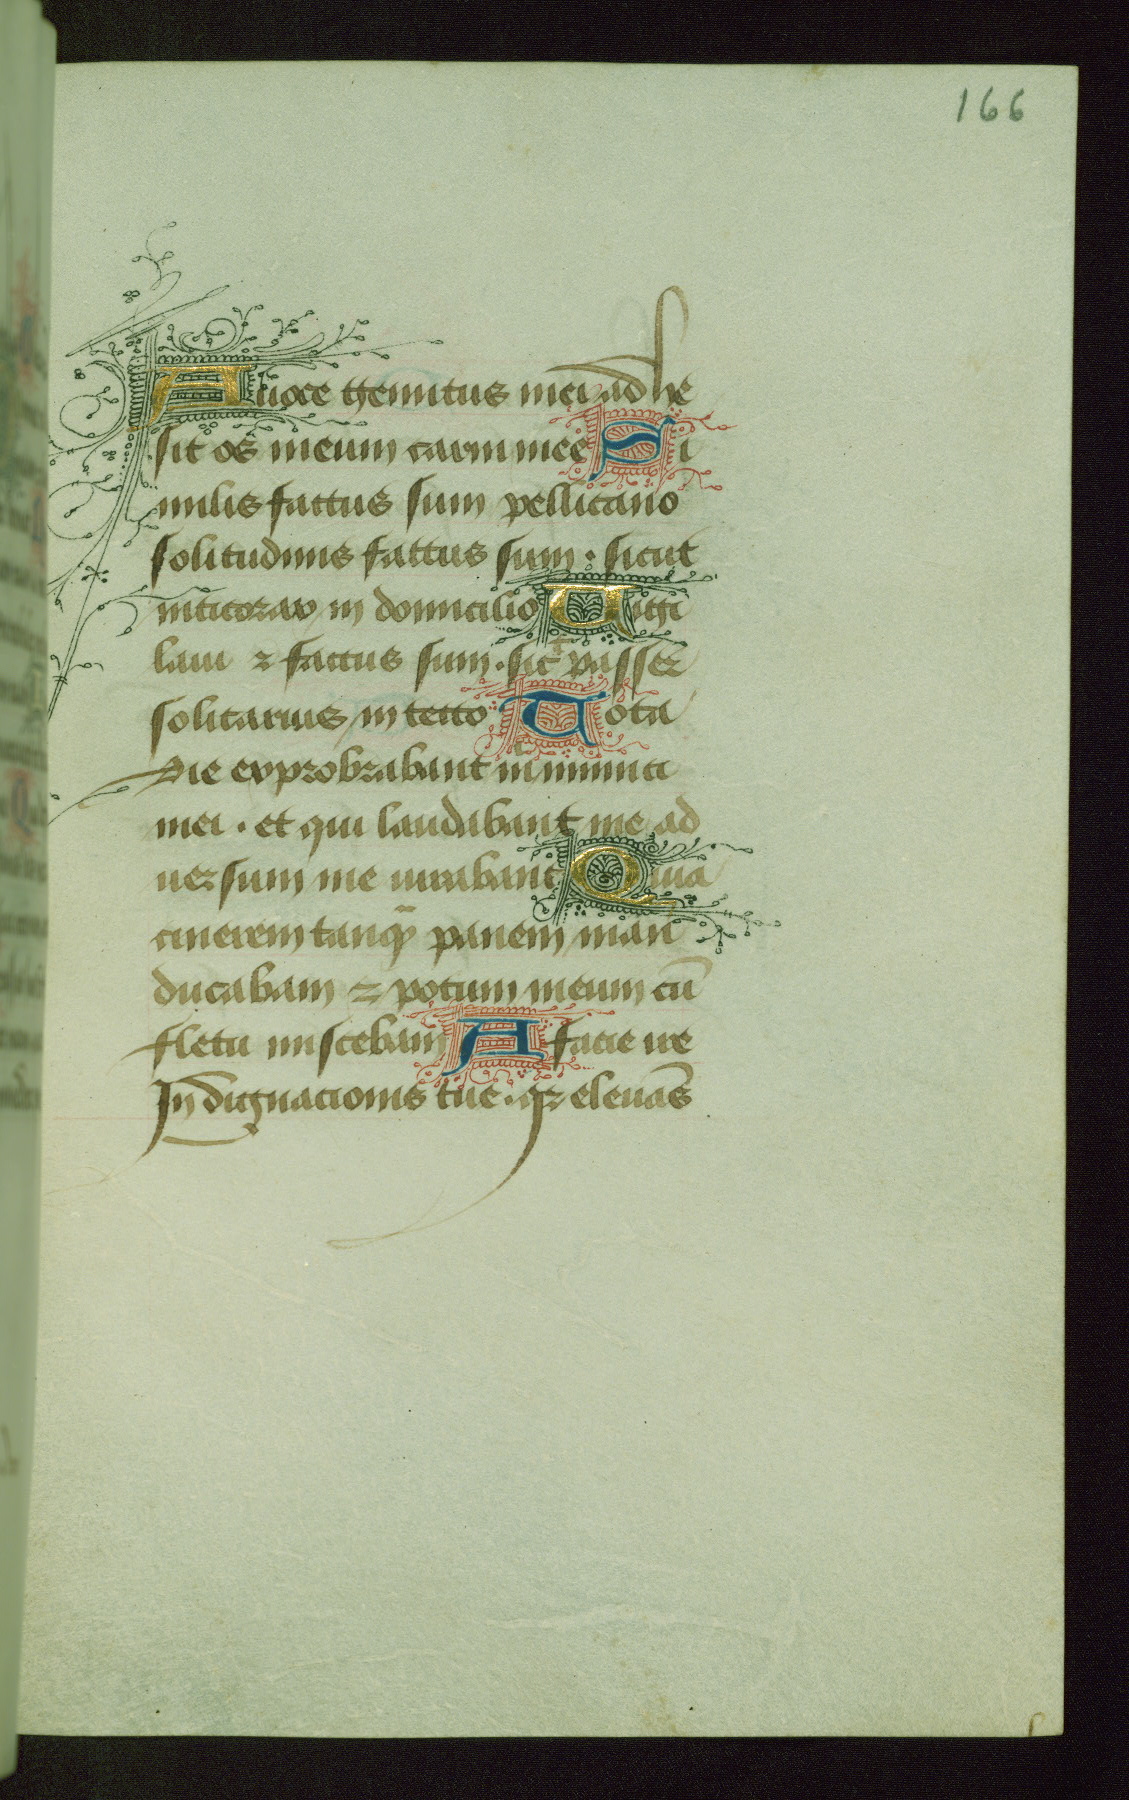 166
A uoce gemitus mei adhe
sit os meum carni mee Si
milis factus sum pellicano
solitudinis factus sum · sicut
nicticorax in domicilio Uigi
laui ⁊ factus sum · sic̄ passer
solitarius in tecto Tota
die exprobrabant in inimici
mei · et qui laudabant me ad
uersum me iurabant Quia
cinerem tanq̃ panem man
ducabam ⁊ potum meum cū
fletu miscebam A facie ire
Indignacionis tue · qꝛ eleuās